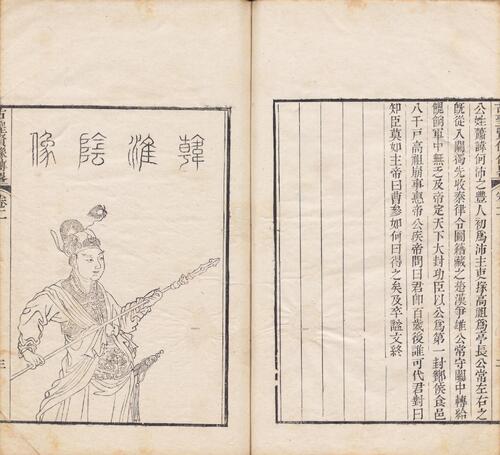 公姓蕭諱何沛之豐人初爲沛主吏掾高祖爲亭長公常左右之
旣從入關獨先收秦律令圖籍藏之楚漢爭雄公常守關中轉給
餽餉軍中無乏及帝定天下大封功臣以公爲第一封酇侯食邑
八千戸高祖崩事惠帝公疾帝問曰君卽百歲後誰可代君對曰
知臣莫如主帝曰曹參如何曰得之矣及卒諡文終
韓淮陰像
古聖賢像傳畧 卷二 三